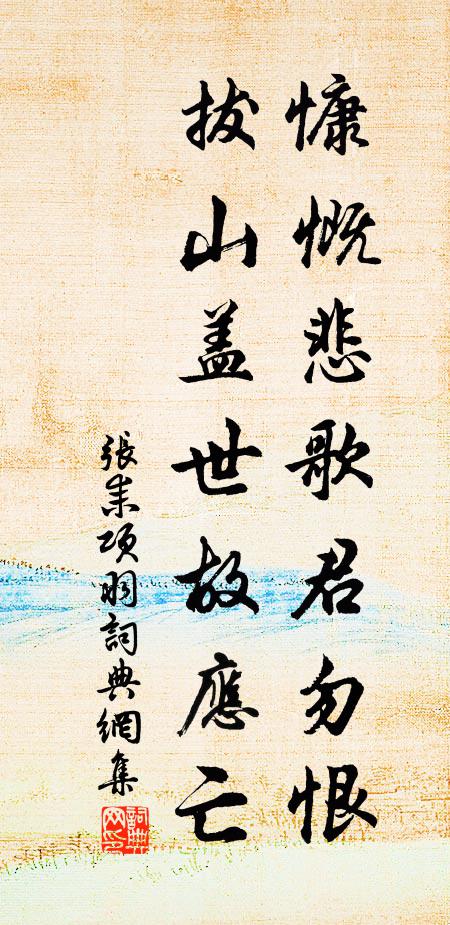 慷慨悲歌君勿恨
拔山盖世故應亡
張耒項羽詞典網集